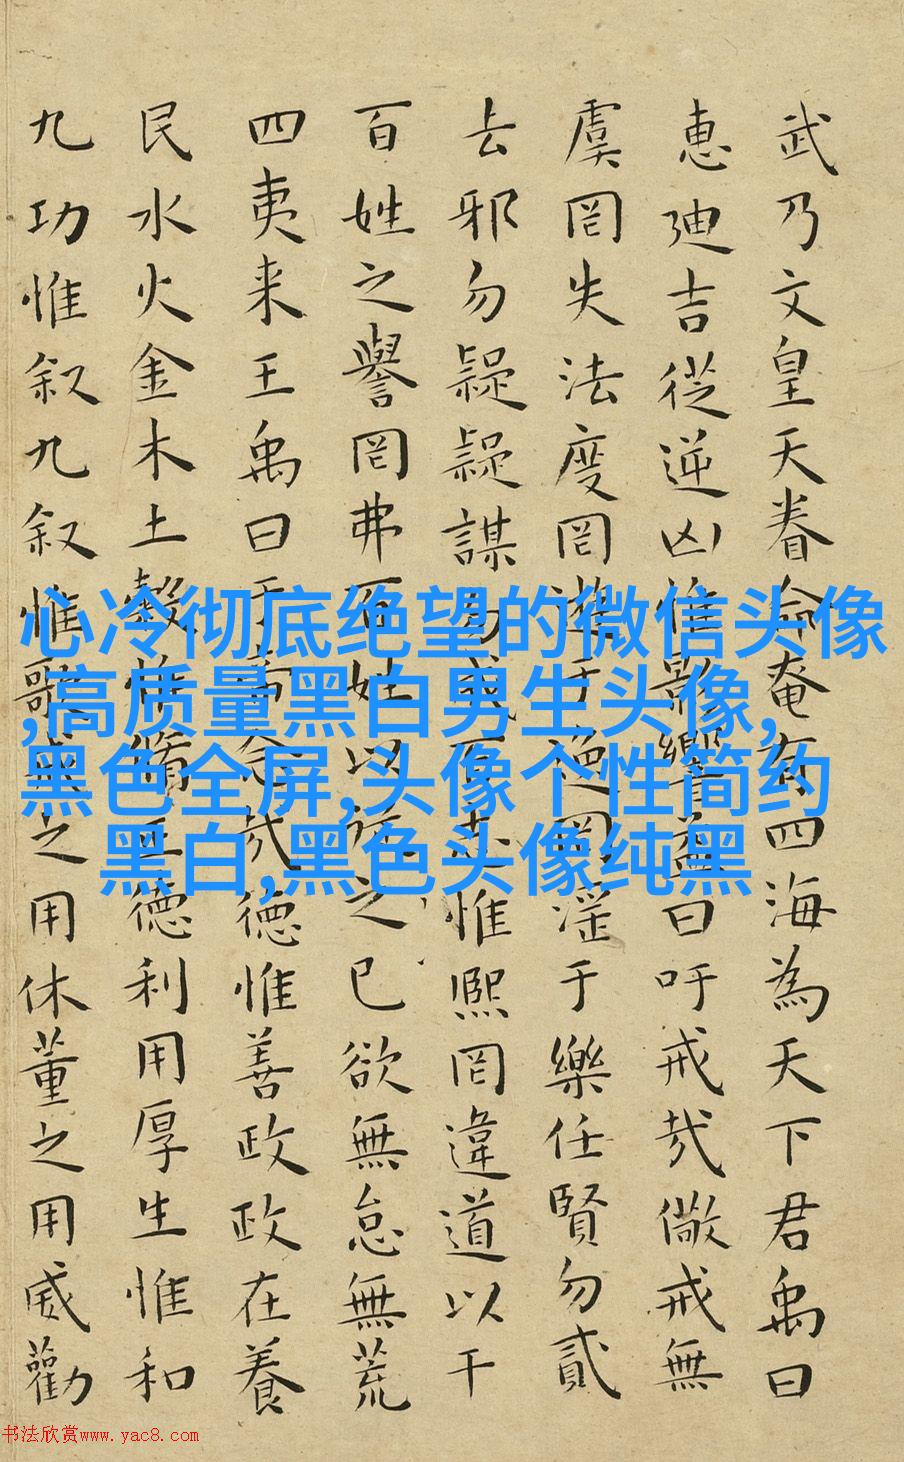 武乃文皇天眷命奄有四海為天下君禹曰
惠迪吉從逆凶惟影響益曰吁戒哉儆戒無
虞罔失法度罔遊于逸罔淫于樂任賢勿貳
去邪勿疑疑謀勿成百志惟熙罔違道以干
百姓之譽罔弗百姓以從之已欲無怠無荒
四夷来王禹曰於帝念哉德惟善政政在養
民水火金木土穀惟脩正德利用厚生惟和
九功惟叙九叙惟歌戒之用休董之用威勸
心冷彻底绝望的微信头像
,高质量黑白男生头像,
黑色全屏,头像个性简约
黑白,黑色头像纯黑
书法欣赏www.yac8.com